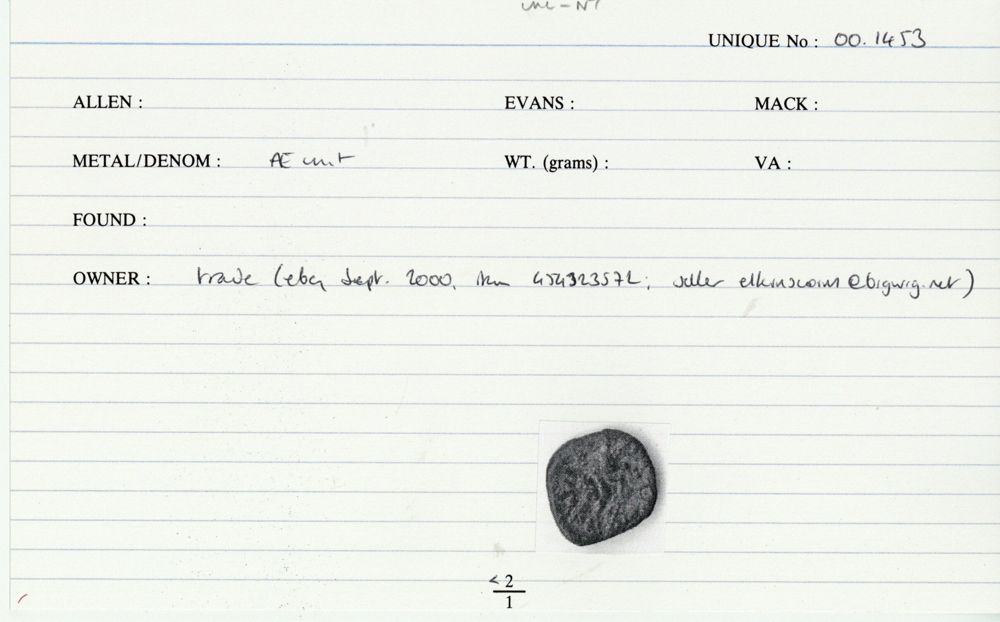 UNIQUE No : 00.1453
ALLEN : EVANS : MACK :
METAL/DENOM : Æ unit WT. (grams) : VA :
FOUND :
OWNER : trade (ebay Sept. 2000, item 454323572; seller elkinscoins@bigwig.net)
< 2
1